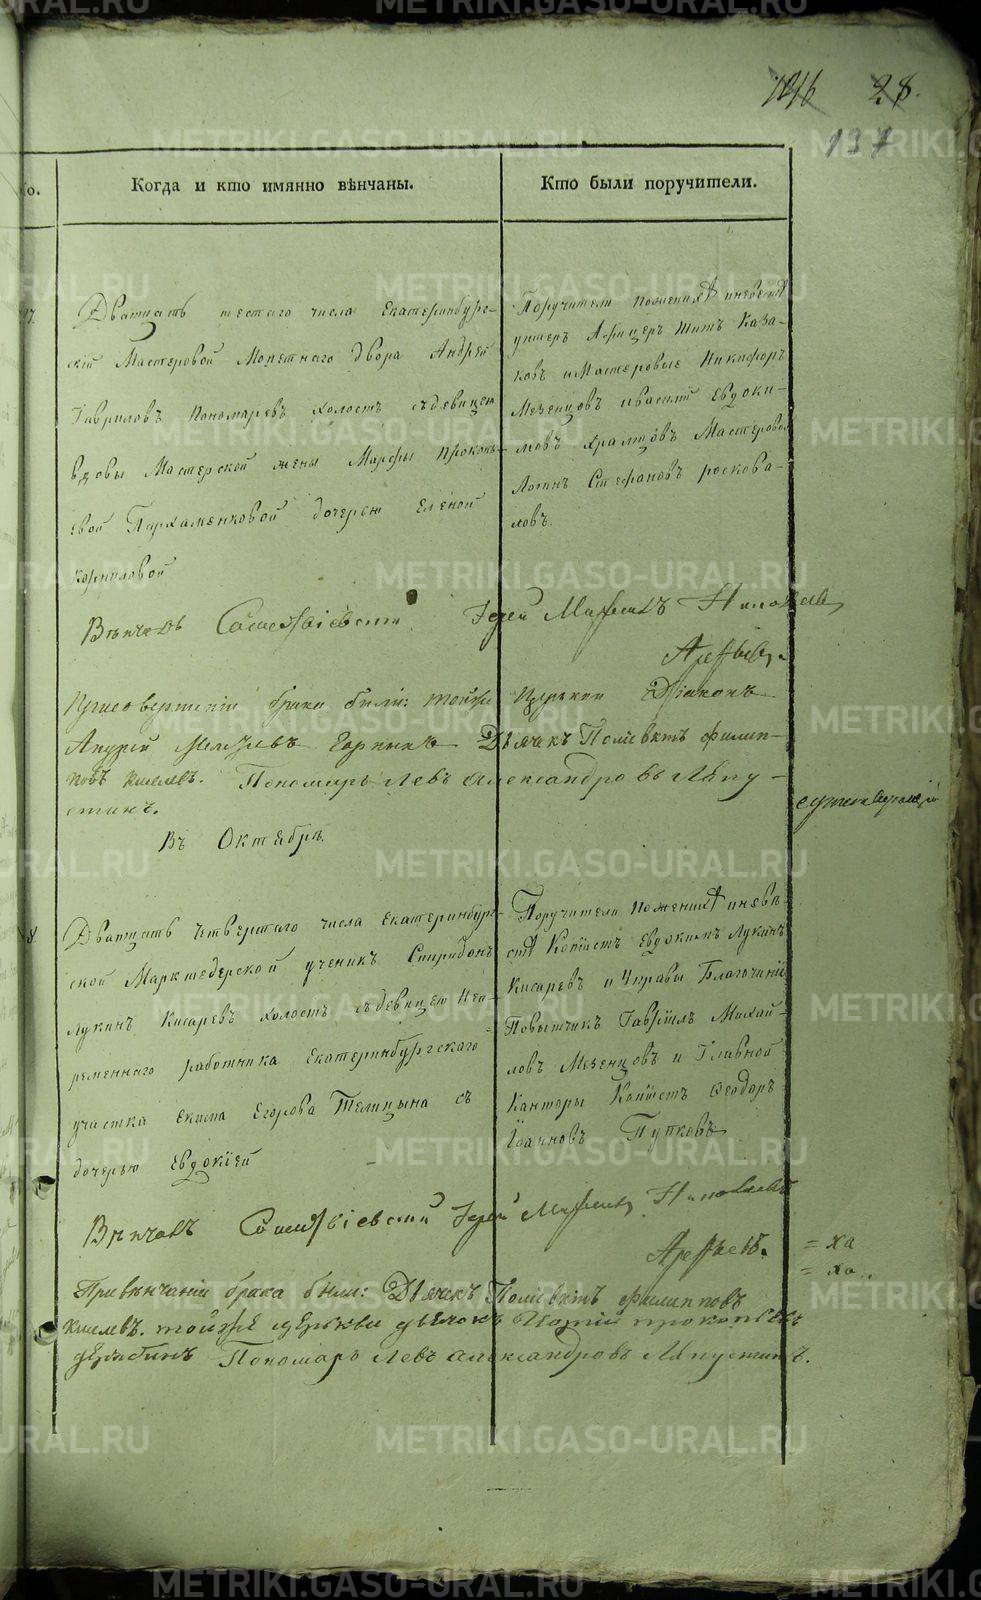 28.
137
Когда и кто имянно вѣнчаны.
Кто были поручители.
17.
Дватцать шестаго числа Екатеринбург-
скїй Мастеровой Монетнаго двора Андрей
Гавриловъ Пономаревъ холостъ съ девицею
вдовы Мастерской жены Марфы Прокопь-
евой Пархаменковой дочерью Еленой
Корниловой
Поручители по женихѣ и невестѣ
унтеръ Афицеръ Титъ Каза-
ковъ и Мастеровые Никифоръ
Мезенцовъ и Василїй Евдоки-
мовъ Храмцовъ Мастеровой
Логинъ Стефановъ
ловъ.
Венчалъ Іерей Михаилъ Николаевъ
Арефьевъ.
При совершенїи брака были: тойже Церькви Дїаконъ
Андрей Дьячекъ Полїевктъ Филип-
повъ Киселевъ. Пономарь Левъ Александровъ Ляпу-
стинъ.
Въ Октябрѣ.
8.
Дватцать четвертаго числа Екатеринбург-
ской Маркшедерской ученикъ Спиридонъ
Лукинъ Кисаревъ холостъ съ девицею Неп-
ременнаго работника Екатеринбургскаго
участка Екима Егорова Телицына съ
дочерью Евдокїей
Поручители по женихѣ и невѣ-
стѣ Копїистъ Евдокимъ Лукинъ
Кисаревъ и Управы Благочинїя
Повытчикъ Гаврїилъ Михай-
ловъ Мезенцовъ и Главной
Канторы Копїистъ Ѳеодоръ
Їоанновъ Пупковъ
Венчалъ Іерей Михаилъ Николаевъ
Арефьевъ.
= ха
= ха
При вѣнчанїи брака были: Дьячекъ Полїевктъ Филипповъ
Киселевъ. тойже церькви Прокопьевъ
Дерябинъ Пономарь Левъ Александровъ Ляпустинъ.
METRIKI.GASO-URAL.RU